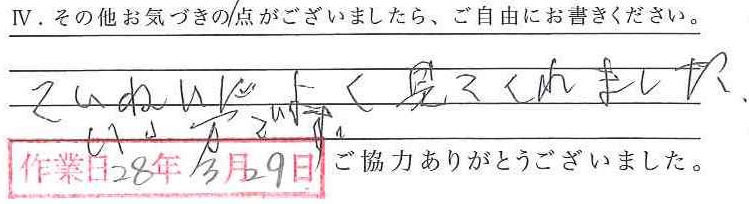 Ⅳ．その他お気づきの点がございましたら、ご自由にお書きください。
ていねいによく見てくれました、
いい方です。
作業日28年3月29日 ご協力ありがとうございました。